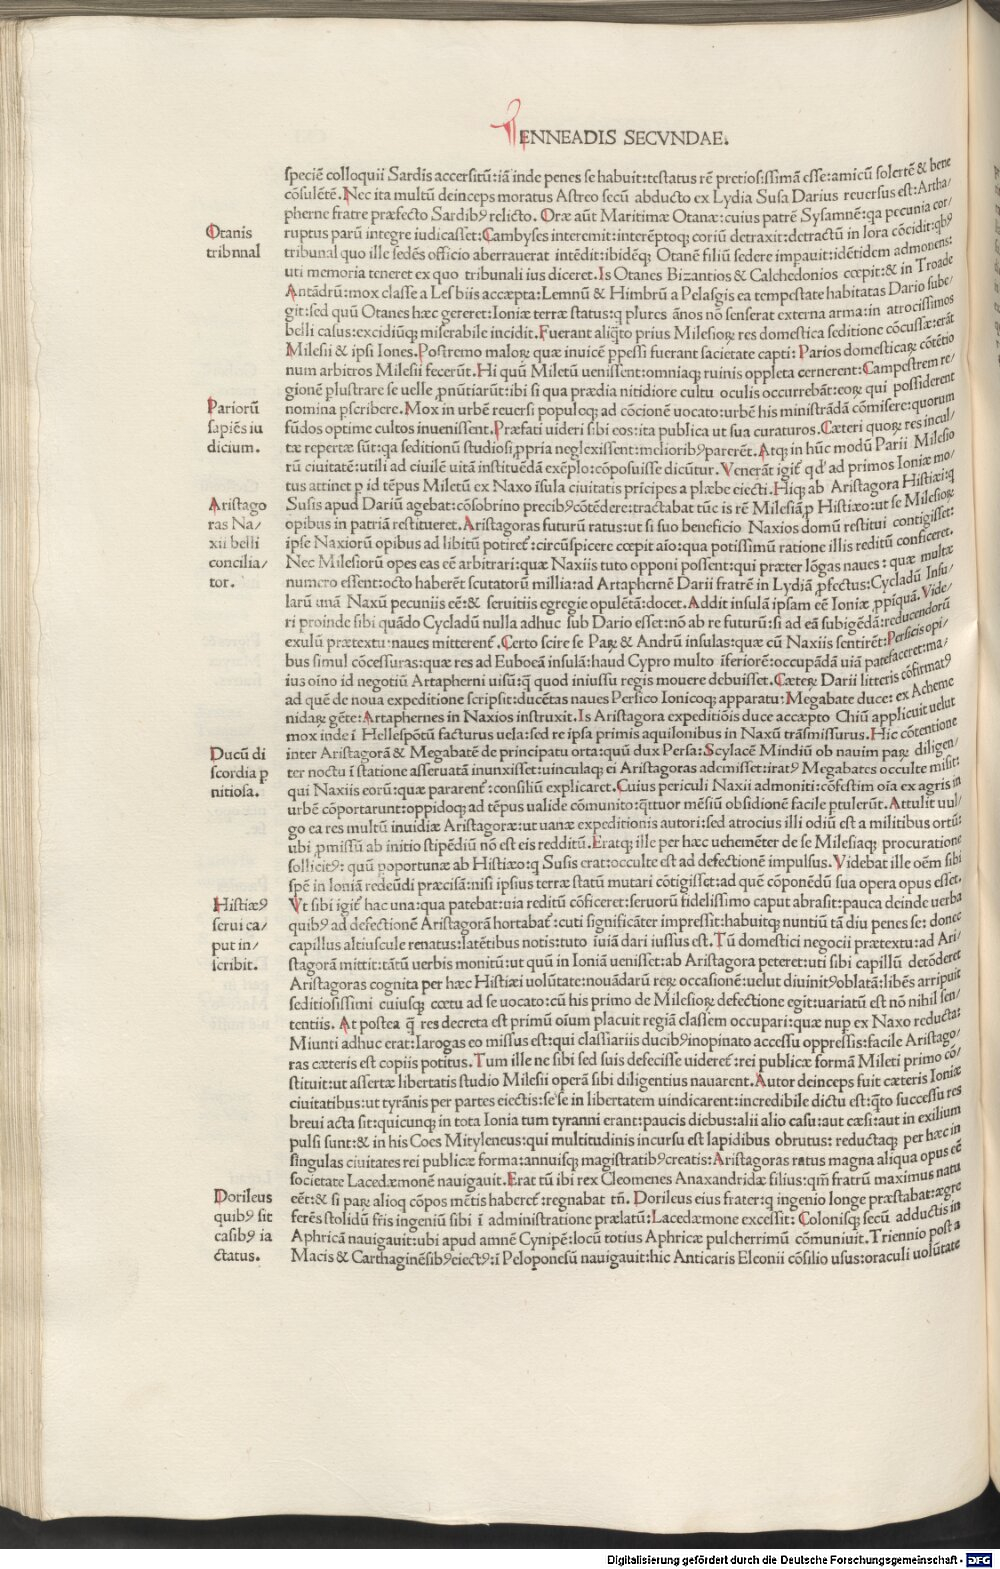 ENNEADIS SECVNDAE.
speciē colloquii Sardis accersitū:iā inde penes se habuit:testatus rē pretiosissimā esse:amicū solertē & bene
cōsulētē.Nec ita multū deinceps moratus Astreo secū abducto ex Lydia Susa Darius reuersus est:Artha/
pherne fratre præfecto Sardibꝰ relicto. Oræ aūt Maritimæ Otanæ:cuius patrē Sysamnē:qa pecunia cor/
Otanis
tribnnal
ruptus parū integre iudicasset:Cambyses interemit:interēptoqꝫ coriū detraxit:detractū in lora cōcidit:qbꝰ
tribunal quo ille sedēs officio aberrauerat intēdit:ibidēqꝫ Otanē filiū sedere impauit:idētidem admonens:
uti memoria teneret ex quo tribunali ius diceret.Is Otanes Bizantios & Calchedonios cœpit:& in Troade
Antādrū:mox classe a Lesbiis accæpta:Lemnū & Himbrū a Pelasgis ea tempestate habitatas Dario sube/
git:sed quū Otanes hæc gereret:Ioniæ terræ status:q plures ānos nō senserat externa arma:in atrocissimos
belli casus:excidiūqꝫ miserabile incidit.Fuerant aliqto prius Milesioꝝ res domestica seditione cōcussæ:erāt
Milesii & ipsi Iones.Postremo maloꝝ quæ inuicē ppessi fuerant sacietate capti: Parios domesticaꝝ cōtētio
num arbitros Milesii fecerūt.Hi quū Miletū uenissent:omniaqꝫ ruinis oppleta cernerent:Campestrem re/
gionē plustrare se uelle pnūtiarūt:ibi si qua prædia nitidiore cultu oculis occurrebāt:eoꝝ qui possiderent
Pariorū
sapiēs iu
dicium.
nomina pscribere.Mox in urbē reuersi populoqꝫ ad cōcionē uocato:urbē his ministrādā cōmisere:quorum
fūdos optime cultos inuenissent.Præfati uideri sibi eos:ita publica ut sua curaturos.Cæteri quoꝝ res incul/
tæ repertæ sūt:qa seditionū studiosi ppria neglexissent:melioribꝰ parerēt.Atqꝫ in hūc modū Parii Milesio
rū ciuitatē:utili ad ciuilē uitā instituēdā exēplo:cōposuisse dicūtur. Venerāt igit qd ad primos Ioniæ mo/
tus attinet p id tēpus Miletū ex Naxo īsula ciuitatis prīcipes a plæbe eiecti.Hiqꝫ ab Aristagora Histiæi:q
Aristago
ras Na/
xii belli
concilia/
tor.
Susis apud Dariū agebat:cōsobrino precibꝰ cōtēdere:tractabat tūc is rē Milesiā p Histiæo:ut se Milesioꝝ
opibus in patriā restitueret.Aristagoras futurū ratus:ut si suo beneficio Naxios domū restitui contigisset:
ipse Naxiorū opibus ad libitū potiret:circūspicere cœpit aīo:qua potissimū ratione illis reditū conficeret.
Nec Milesiorū opes eas eē arbitrari:quæ Naxiis tuto opponi possent:qui præter lōgas naues: quæ multæ
numero essent:octo haberēt scutatorū millia:ad Artaphernē Darii fratrē in Lydiā pfectus:Cycladū Insu/
larū unā Naxū pecuniis eē:& seruitiis egregie opulētā:docet.Addit insulā ipsam eē Ioniæ ppiquā.Vide/
ri proinde sibi quādo Cycladū nulla adhuc sub Dario esset:nō ab re futurū:si ad eā subigēdā:reducendorū
exulū prætextu:naues mitterent.Certo scire se Paꝝ & Andrū insulas:quæ cū Naxiis sentirēt:Persicis opi/
bus simul cōcessuras:quæ res ad Euboeā insulā:haud Cypro multo īferiorē:occupādā uiā patefaceret:ma/
ius oīno id negotiū Artapherni uisū:q̄ quod iniussu regis mouere debuisset.Cæteꝝ Darii litteris cōfirmatꝰ
ad quē de noua expeditione scripsit:ducētas naues Persico Ionicoqꝫ apparatu:Megabate duce: ex Acheme
nidaꝝ gēte:Artaphernes in Naxios instruxit.Is Aristagora expeditiōis duce accæpto Chiū applicuit uelut
mox inde ī Hellespōtū facturus uela:sed re ipsa primis aquilonibus in Naxū trāsmissurus.Hic cōtentione
Ducū di
scordia p
nitiosa.
inter Aristagorā & Megabatē de principatu orta:quū dux Persa:Scylacē Mindiū ob nauim paꝝ diligen/
ter noctu ī statione asseruatā inunxisset:uinculaqꝫ ei Aristagoras ademisset:iratꝰ Megabates occulte misit:
qui Naxiis eorū:quæ pararent:consiliū explicaret.Cuius periculi Naxii admoniti:cōfestim oīa ex agris in
urbē cōportarunt:oppidoqꝫ:ad tēpus ualide cōmunito:qttuor mēsiū obsidionē facile ptulerūt.Attulit uul/
go ea res multū inuidiæ Aristagoræ:ut uanæ expeditionis autori:sed atrocius illi odiū est a militibus ortū:
ubi pmissū ab initio stipēdiū nō est eis redditū.Eratqꝫ ille per hæc uehemēter de se Milesiaqꝫ procuratione
sollicitꝰ: quū poportunæ ab Histiæo:q Susis erat:occulte est ad defectionē impulsus.Videbat ille oēm sibi
spē in Ioniā redeūdi præcisā:nisi ipsius terræ statū mutari cōtigisset:ad quē cōponēdū sua opera opus esset.
Histiæꝰ
serui ca/
put in/
scribit.
Vt sibi igit hac una:qua patebat:uia reditū cōficeret:seruorū fidelissimo caput abrasit:pauca deinde uerba
quibꝰ ad defectionē Aristagorā hortabat:cuti significāter impressit:habuitqꝫ nuntiū tā diu penes se: donec
capillus altiuscule renatus:latētibus notis:tuto īuiā dari iussus est.Tū domestici negocii prætextu:ad Ari/
stagorā mittit:tātū uerbis monitū:ut quū in Ioniā uenisset:ab Aristagora peteret:uti sibi capillū detōderet
Aristagoras cognita per hæc Histiæi uolūtate:nouādarū reꝝ occasionē:uelut diuinitꝰ oblatā:libēs arripuit
seditiosissimi cuiusqꝫ cœtu ad se uocato:cū his primo de Milesioꝝ defectione egit:uariatū est nō nihil sen/
tentiis. At postea q̄ res decreta est primū oīum placuit regiā classem occupari:quæ nup ex Naxo reducta:
Miunti adhuc erat:Iarogas eo missus est:qui classiariis ducibꝰ inopinato accessu oppressis:facile Aristago/
ras cæteris est copiis potitus.Tum ille ne sibi sed suis defecisse uideret:rei publicæ formā Mileti primo cō/
stituit:ut assertæ libertatis studio Milesii operā sibi diligentius nauarent.Autor deinceps fuit cæteris Ioniæ
ciuitatibus:ut tyrānis per partes eiectis:se se in libertatem uindicarent:incredibile dictu est:qto successu res
breui acta sit:quicunqꝫ in tota Ionia tum tyranni erant:paucis diebus:alii alio casu:aut cæsi:aut in exilium
pulsi sunt:& in his Coes Mityleneus:qui multitudinis incursu est lapidibus obrutus: reductaqꝫ per hæc in
singulas ciuitates rei publicæ forma:annuisqꝫ magistratibꝰ creatis:Aristagoras ratus magna aliqua opus eē
societate Lacedæmonē nauigauit.Erat tū ibi rex Cleomenes Anaxandridæ filius:qm̄ fratrū maximus natu
Dorileus
quibꝰ sit
casibꝰ ia
ctatus.
eēt:& si paꝝ alioq cōpos mētis haberet:regnabat tn̄. Dorileus eius frater:q ingenio longe præstabat:ægre
ferēs stolidū fris ingeniū sibi ī administratione prælatū:Lacedæmone excessit: Colonisqꝫ secū adductis in
Aphricā nauigauit:ubi apud amnē Cynipē:locū totius Aphricæ pulcherrimū cōmuniuit. Triennio post a
Macis & Carthaginēsibꝰ eiectꝰ:ī Peloponesū nauigauit:hic Anticaris Eleonii cōsilio usus:oraculi uolūtate
Digitalisierung gefördert durch die Deutsche Forschungsgemeinschaft - DFG